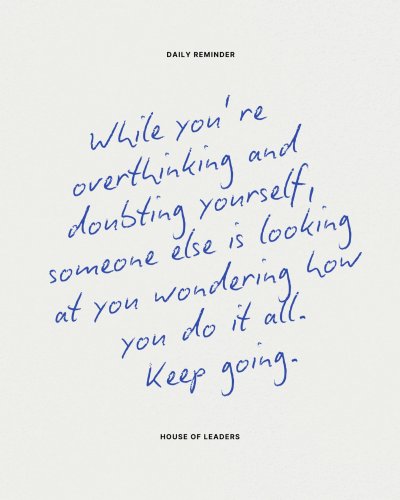 DAILY REMINDER
While you're
overthinking and
doubting yourself,
someone else is looking
at you wondering how
you do it all.
Keep going.
HOUSE OF LEADERS